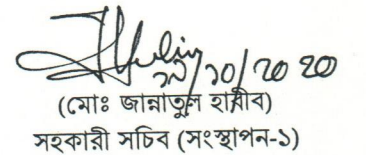 ১৯/১০/২০২০
(মোঃ জান্নাতুল হাবীব)
সহকারী সচিব (সংস্থাপন-১)